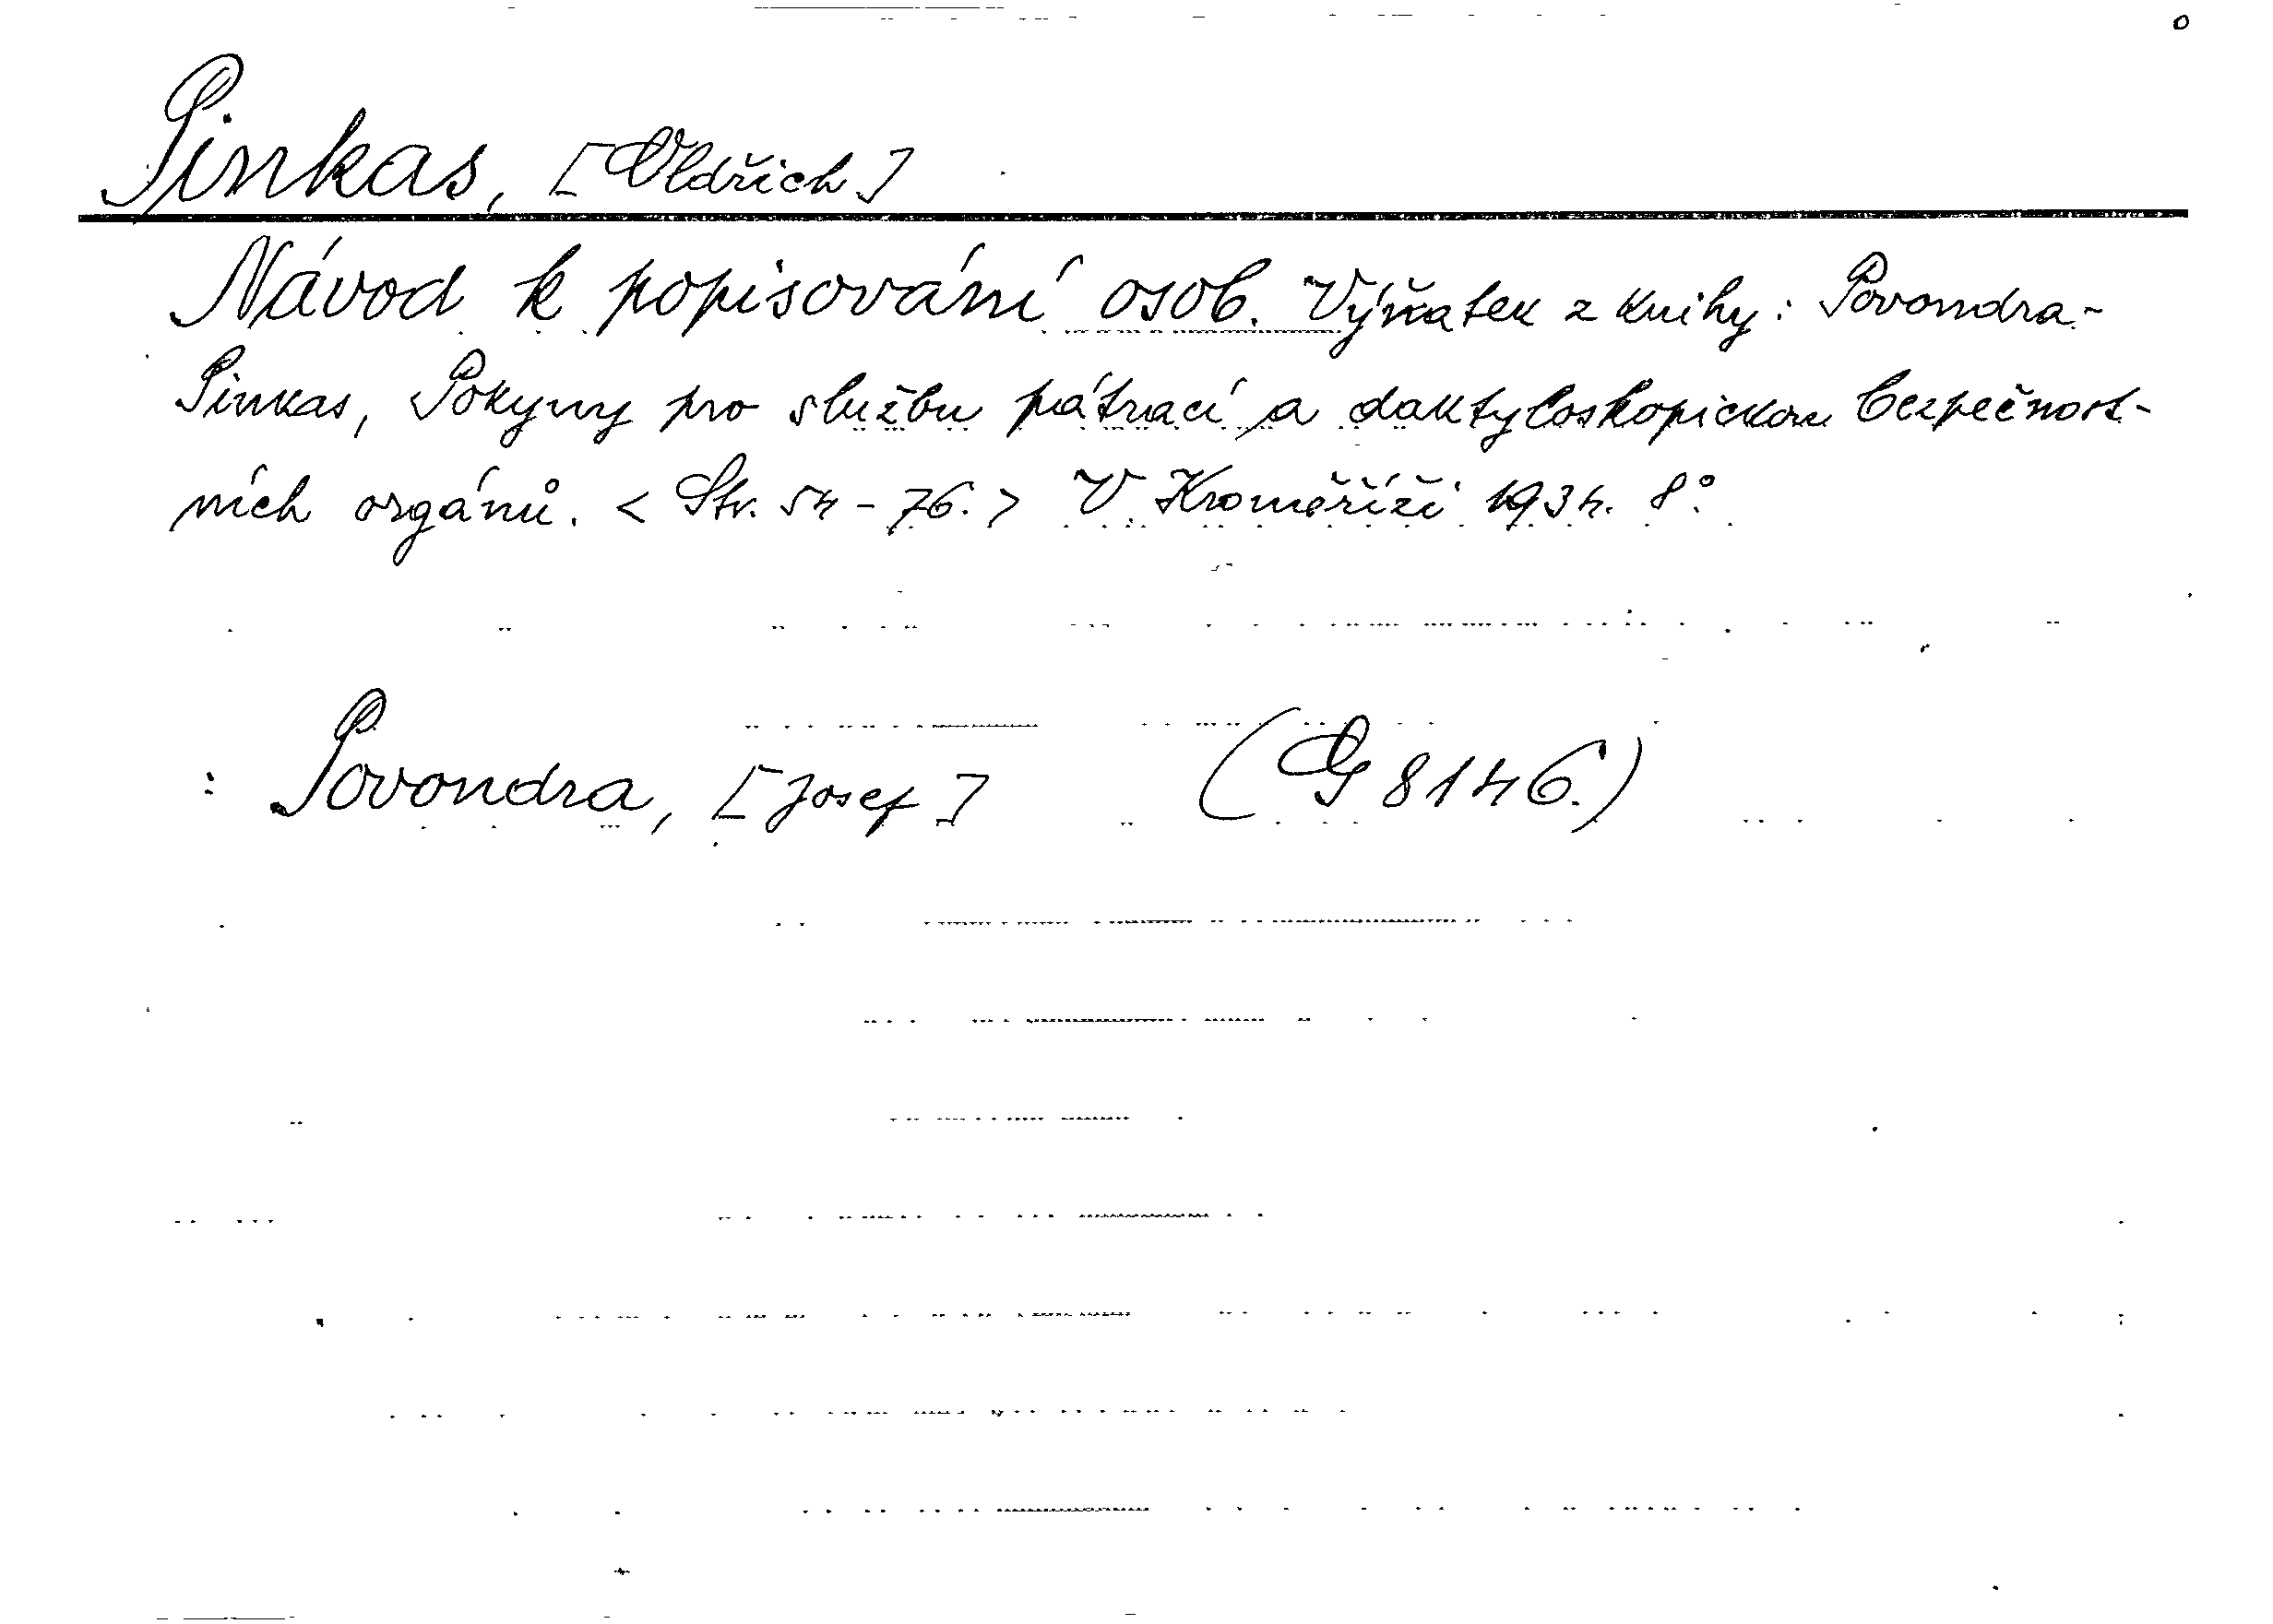 Pinkas, [Oldřich]
Návod k popisování osob. Výňatek z knihy: Povondra-
Pinkas, Pokyny pro službu pátrací a daktyloskopickou bezpečnost-
ních orgánů. < Str. 54-76. > V Kroměříži 1934. 8°.
: Povondra, [Josef] (G 8146.)